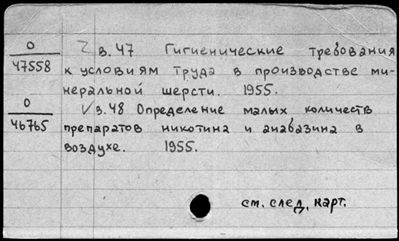 О
47558
в. 47 Гигиенические требования
к условиям труда в производстве ми-
неральной шерсти. 1955.
О
46765
в. 48 Определение малых количеств
препаратов никотина и анабазина в
воздухе. 1955.
см. след. карт.